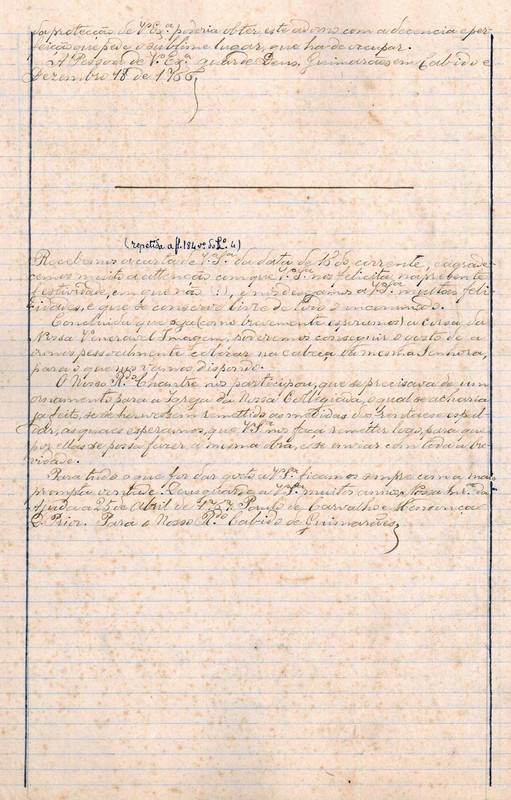 da protecção de V. Exª. poderia obter este adorno com a decencia e per-
feição que pede o sublime lugar, que ha de occupar.
A Pessoa de V. Exª. guarde Deus. Guimarães em Cabido e
Dezembro 18 de 1766
(repetida a fl. 184 vº do Lº. 4)
Recebemos a carta de V. Sª. da data de 15 do corrente, e agrade-
cemos muito a attenção com que V. Sª. nos felicita na presente
festividade, em que não (!), e nós desejamos a V. Sª. muitas feli-
cidades, e que se conserve livre de todo o incommodo.
Concluida que seja (como brevemente esperamos) a corôa da
Nossa Veneravel Imagem, poderemos conseguir o gosto de a
irmos pessoalmente collocar na cabeça da mesma Senhora,
para o que nos vamos dispondo.
O Nosso R.do Chantre nos participou, que se precisava de um
ornamento para a Igreja da Nossa Collegiada, o qual se acharia
já feito, se se houvessem remettido as medidas dos frontaes e espal-
dar, as quaes esperamos, que V. Sª. nos faça remetter logo, para que
por ellas se possa fazer a mesma obra, e se enviar com toda a bre-
vidade.
Para tudo o que for dar gosto a V. Sª. ficamos sempre com a mais
prompta vontade. Deus guarde a V. Sª. muitos annos. Nossa Snr.ª da
Ajuda a 25 de Abril de Paulo de Carvalho e Mendonça
D. Prior. Para o Nosso R.do Cabido de Guimarães